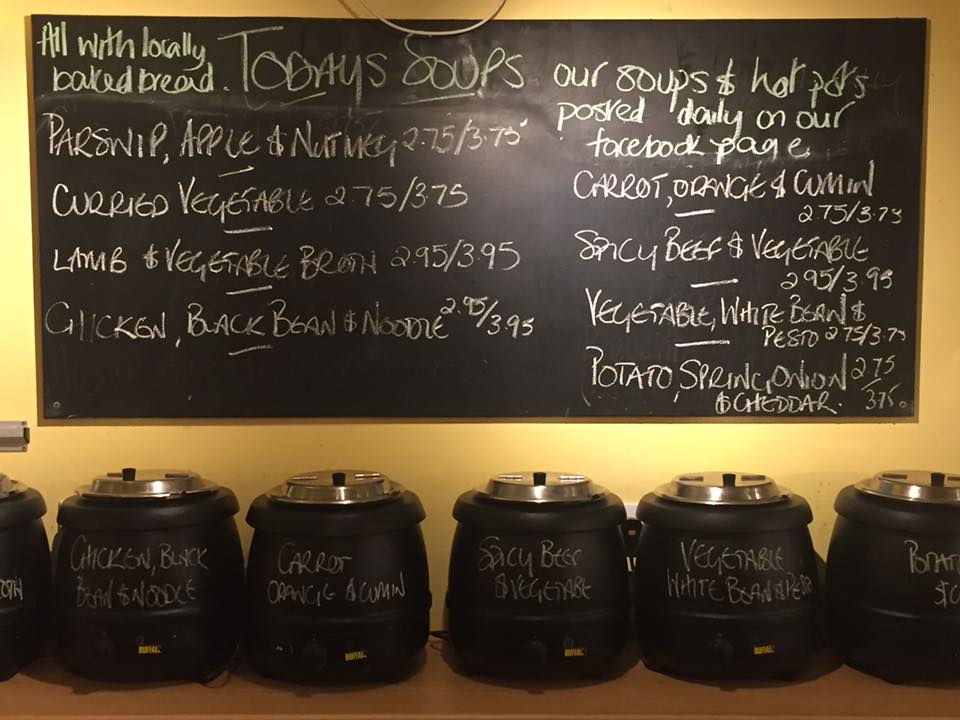 All with locally
baked bread.
TODAYS SOUPS
PARSNIP, APPLE & NUTMEG 2.75/3.75
CURRIED VEGETABLE 2.75/3.75
LAMB & VEGETABLE BROTH 2.95/3.95
CHICKEN, BLACK BEAN & NOODLE 2.95/3.95
our soups & hot pots
posted daily on our
facebook page
CARROT, ORANGE & CUMIN
2.75/3.75
SPICY BEEF & VEGETABLE
2.95/3.95
VEGETABLE, WHITE BEAN &
PESTO 2.75/3.75
POTATO, SPRING ONION 2.75/
& CHEDDAR. 3.75
OTH
CHICKEN, BLACK
BEAN & NOODLE
BUFFALO
CARROT
ORANGE & CUMIN
BUFFALO
SPICY BEEF
& VEGETABLE
BUFFALO
VEGETABLE
WHITE BEAN & PESTO
BUFFALO
POTAT
& C